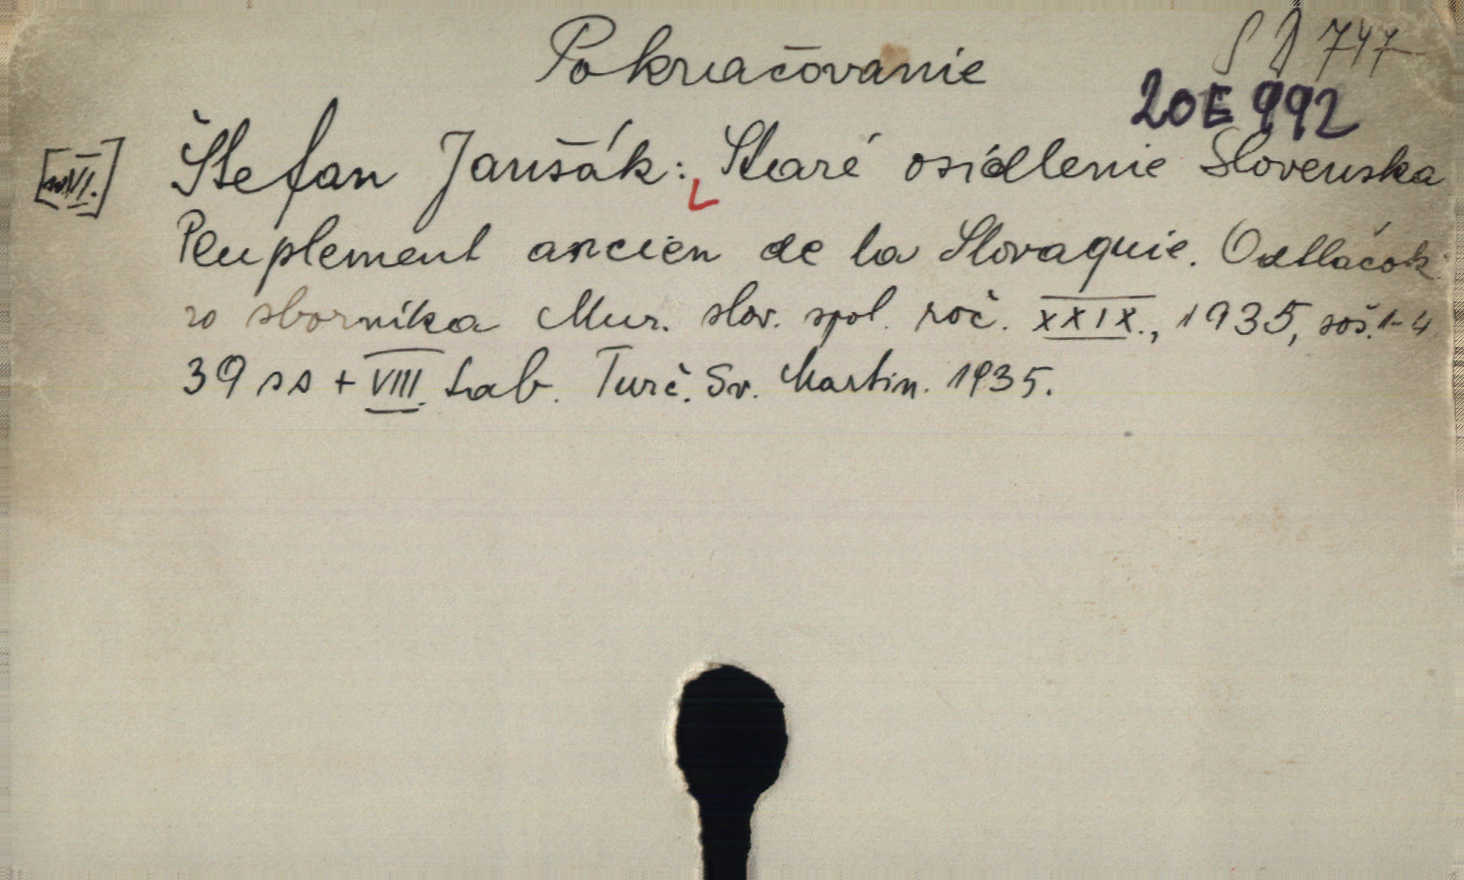 Pokračovanie
S D 747
20E992
Štefan Janšák: Staré osídlenie Slovenska
Peuplement ancien de la Slovaquie. Odtlačok
zo sborníka Muz. slov. spol. roč. XXIX., 1935, soš. 1-4
39 ss + VIII. tab. Turč. Sv. Martin. 1935.